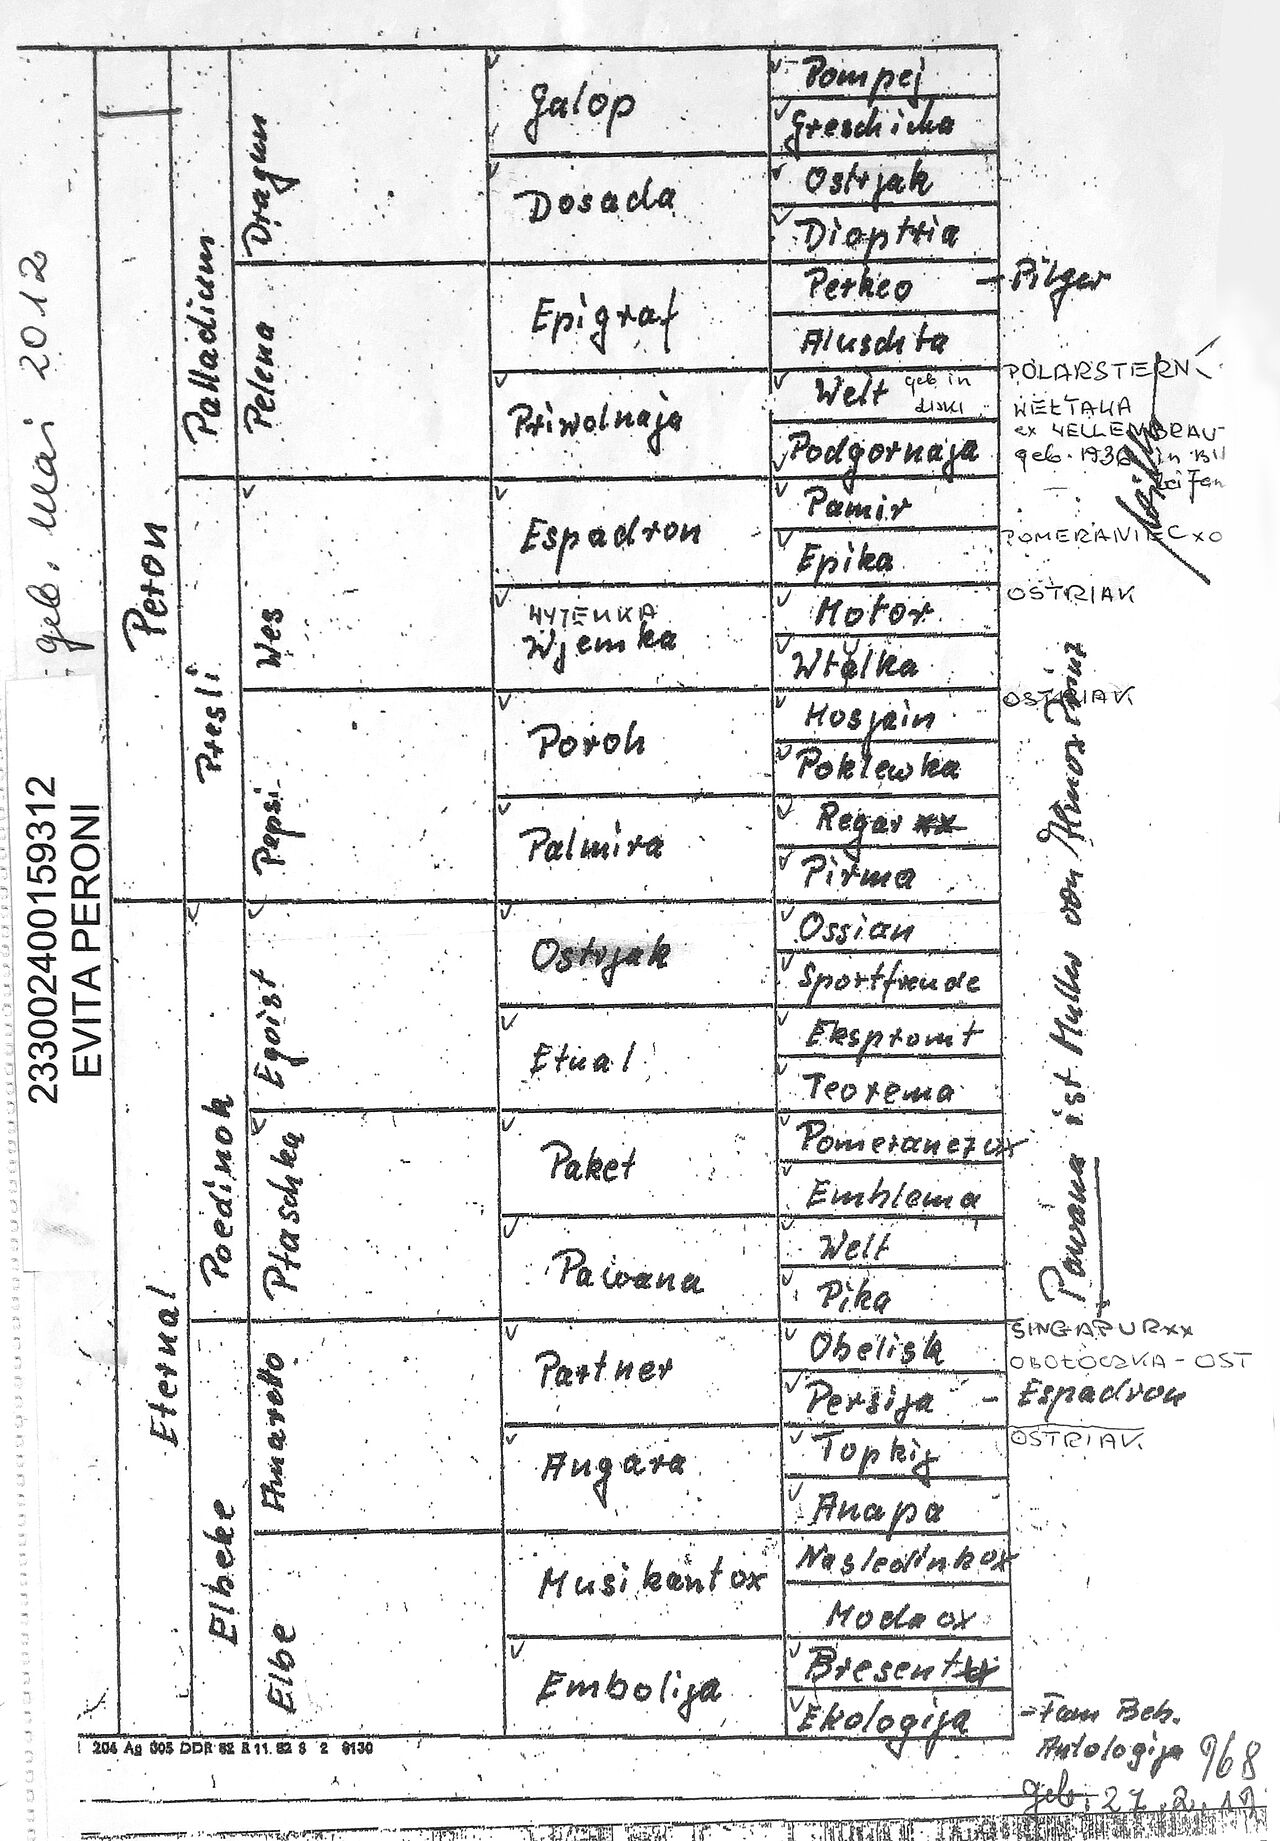 geb. Mai 2012
233002400159312
EVITA PERONI
Peron
Eternal
Palladium
Presli
Poedinok
Elbeke
Dragun
Pelena
Wes
Pepsi
Egoist
Ptaschka
Amaretto
Elbe
Galop
Dosada
Epigraf
Priwolnaja
Espadron
WYTENKA
Wjemka
Poroh
Palmira
Ostrjak
Etual
Paket
Pawana
Partner
Angara
Musikant ox
Embolija
Pompej
Greschicha
Ostrjak
Dioptria
Perkeo – Pilger
Aluschta
Welt geb in
Podgornaja
Pamir
Epika
Motor
Wtulka
Hosjain
Poklewka
Regar xx
Pirma
Ossian
Sportfreude
Ekspromt
Teorema
Pomeranez ox
Emblema
Welt
Pika
Obelisk
Persija – Espadron
Topkij
Anapa
Naslednik ox
Moda ox
Bresent
Ekologija
POLARSTERN
WEŁTAWA
ex WELLENBRAU
geb. 1936 in
POMERANIEC xo
OSTRIAK
OSTRIAK
Pawana ist Mutter von Almox Prinz
SINGAPUR xx
OBOŁOCZKA - OST
OSTRIAK
- Fam Beh.
Antologija 968
geb. 27.2.17
204 Ag 305 DDR 82 R 11. 82 S 2 6130